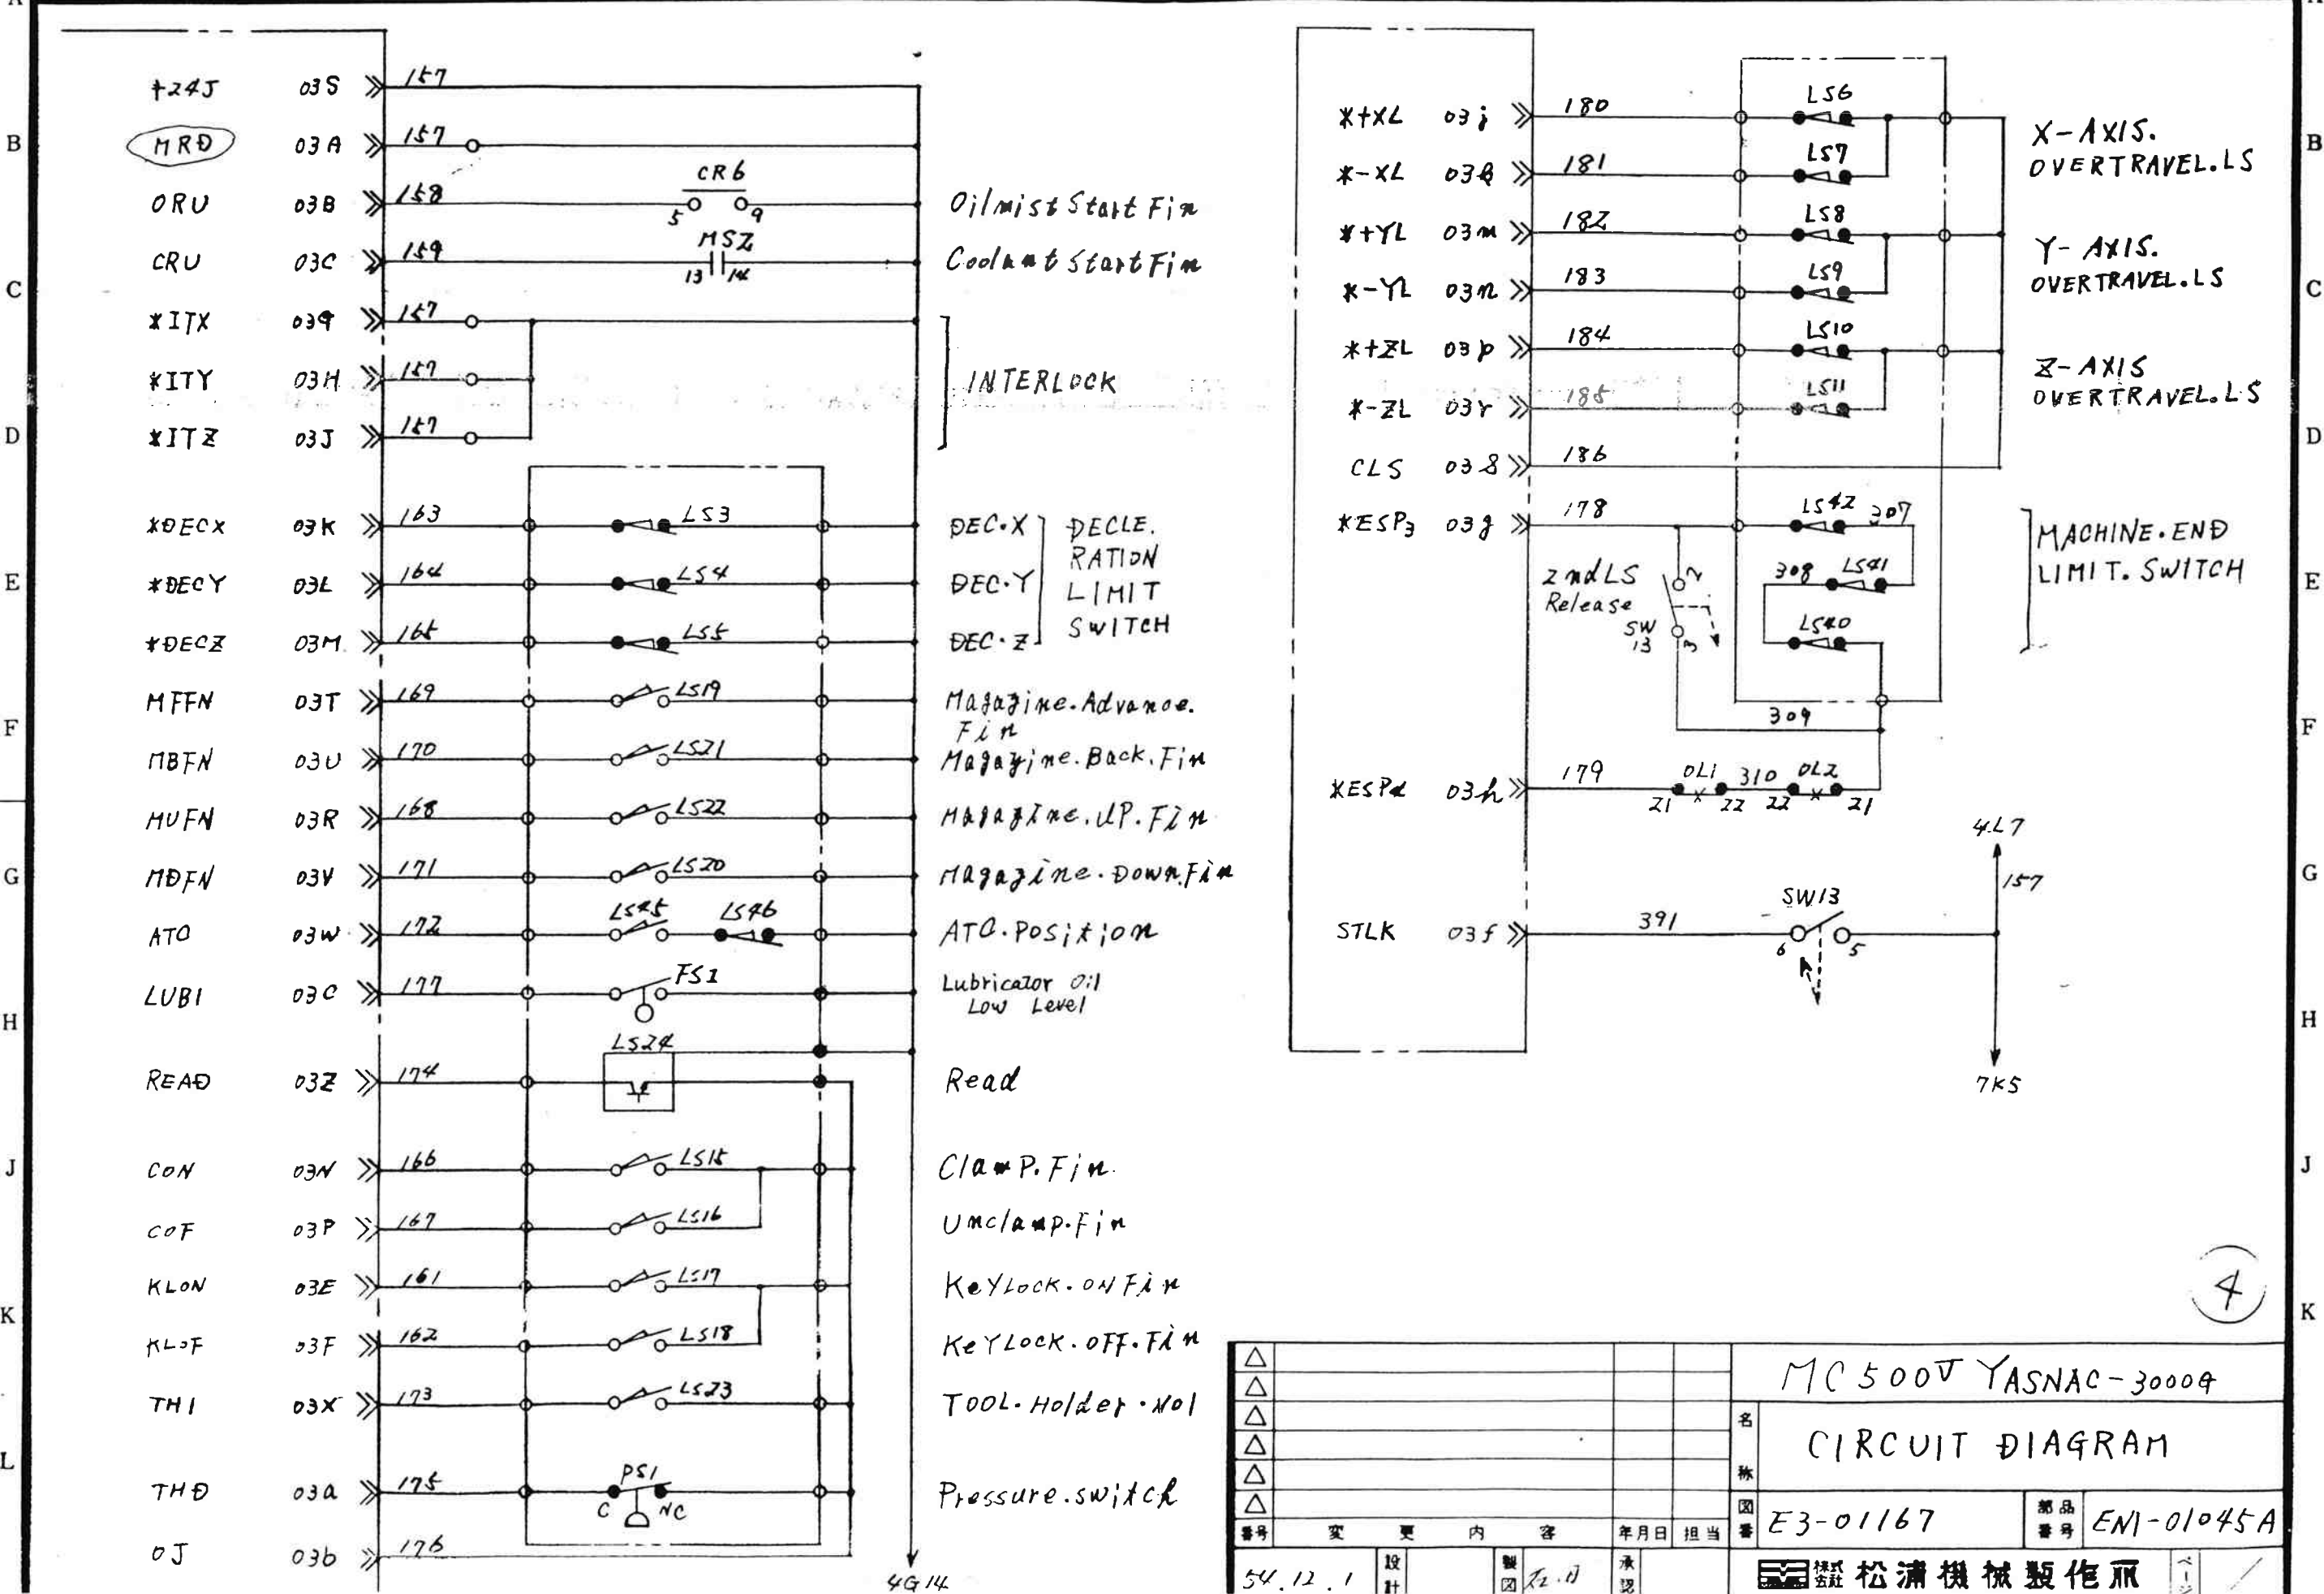 A
A
B
B
C
C
D
D
E
E
F
F
G
G
H
H
J
J
K
K
L
+24J 03S 157
MRD 03A 157
ORU 03B 158 CR6 5 9 Oilmist Start Fin
CRU 03C 159 MS2 13 14 Coolant Start Fin
*ITX 03G 157
*ITY 03H 157 INTERLOCK
*ITZ 03J 157
*DECX 03K 163 LS3 DEC.X
*DECY 03L 164 LS4 DEC.Y
*DECZ 03M 165 LS5 DEC.Z
DECLE.
RATION
LIMIT
SWITCH
MFFN 03T 169 LS19 Magazine.Advance.
Fin
MBFN 03U 170 LS21 Magazine.Back.Fin
MUFN 03R 168 LS22 Magazine.UP.Fin
MDFN 03V 171 LS20 Magazine.Down.Fin
ATC 03W 172 LS45 LS46 ATC.Position
LUB1 03C 177 FS1 Lubricator Oil
Low Level
READ 03Z 174 LS24 Read
CON 03N 166 LS15 Clamp.Fin.
COF 03P 167 LS16 Unclamp.Fin
KLON 03E 161 LS17 KeYLock.ON Fin
KLOF 03F 162 LS18 KeYLock.OFF.Fin
TH1 03X 173 LS23 TOOL.Holder.No1
THD 03a 175 PS1 C NC Pressure.switch
0J 03b 176
4G14
*+XL 03j 180 LS6
*-XL 03k 181 LS7
X-AXIS.
OVERTRAVEL.LS
*+YL 03m 182 LS8
*-YL 03n 183 LS9
Y-AXIS.
OVERTRAVEL.LS
*+ZL 03p 184 LS10
*-ZL 03r 185 LS11
Z-AXIS
OVERTRAVEL.LS
CLS 03s 186
*ESP3 03g 178 LS42 307
308 LS41
LS40
MACHINE.END
LIMIT.SWITCH
2nd LS
Release
SW
13
2
3
309
*ESP4 03h 179 OL1 310 OL2
21 22 22 21
4L7
157
STLK 03f 391 SW13
6 5
7K5
4
MC500V YASNAC-3000G
名称 CIRCUIT DIAGRAM
図番 E3-01167 部品番号 EN1-01045A
番号 変更内容 年月日 担当
54.12.1 設計 製図 承認
株式会社 松浦機械製作所 ペーシ